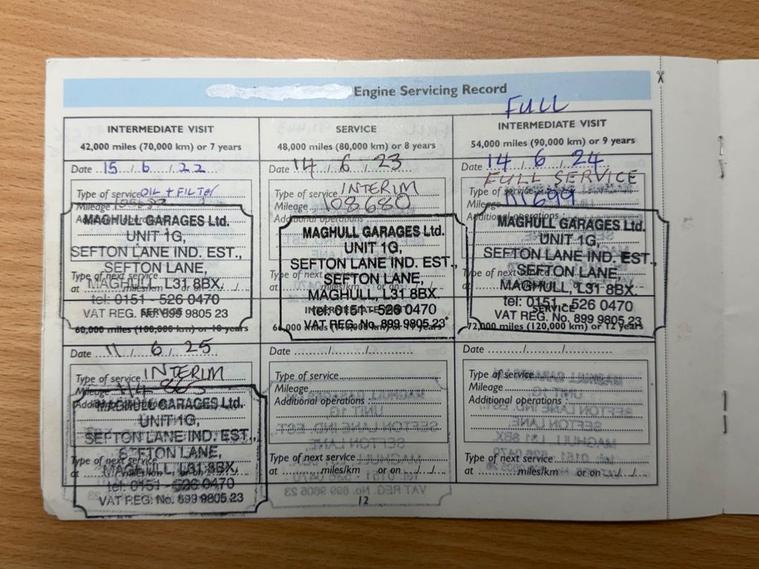 Engine Servicing Record
FULL
INTERMEDIATE VISIT
42,000 miles (70,000 km) or 7 years
Date 15 . 6 . 22
Type of service OIL + FILTER
Mileage
MAGHULL GARAGES Ltd.
UNIT 1G,
SEFTON LANE IND. EST.,
SEFTON LANE,
Type of next service
MAGHULL, L31 8BX.
at miles/km
tel: 0151 - 526 0470
VAT REG. No. 899 9805 23
SERVICE
48,000 miles (80,000 km) or 8 years
Date 14 . 6 . 23
Type of service INTERIM
Mileage 108680
Additional operations
MAGHULL GARAGES Ltd.
UNIT 1G,
SEFTON LANE IND. EST.,
SEFTON LANE,
Type of next service
MAGHULL, L31 8BX.
tel: 0151 - 526 0470
VAT REG. No. 899 9805 23
INTERMEDIATE VISIT
54,000 miles (90,000 km) or 9 years
Date 14 . 6 . 24
FULL SERVICE
Type of service
Mileage 111699
Additional operations
MAGHULL GARAGES Ltd.
UNIT 1G,
SEFTON LANE IND. EST.,
SEFTON LANE,
Type of next service
MAGHULL, L31 8BX.
tel: 0151 - 526 0470
VAT REG. No. 899 9805 23
SERVICE
60,000 miles (100,000 km) or 10 years
Date 11 . 6 . 25
Type of service INTERIM
Mileage
MAGHULL GARAGES Ltd.
Additional operations
UNIT 1G,
SEFTON LANE IND. EST.,
SEFTON LANE,
Type of next service
MAGHULL, L31 8BX.
at miles/km
tel: 0151 - 526 0470
VAT REG. No. 899 9805 23
INTERMEDIATE VISIT
Date
Type of service
Mileage
Additional operations
Type of next service
at miles/km or on
SERVICE
72,000 miles (120,000 km) or 12 years
Date
Type of service
Mileage
Additional operations
Type of next service
at miles/km or on
12